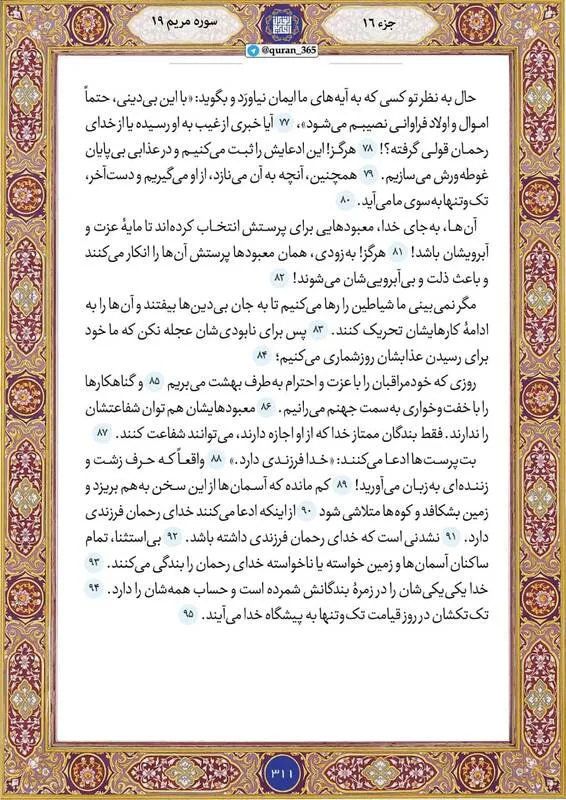 جزء ۱۶
سوره مریم ۱۹
@quran_365
حال به نظر تو کسی که به آیه‌های ما ایمان نیاورَد و بگوید: «با این بی‌دینی، حتماً
اموال و اولاد فراوانی نصیبم می‌شود»، ۷۷ آیا خبری از غیب به او رسیده یا از خدای
رحمان قولی گرفته؟! ۷۸ هرگز! این ادعایش را ثبت می‌کنیم و در عذابی بی‌پایان
غوطه‌ورش می‌سازیم. ۷۹ همچنین، آنچه به آن می‌نازد، از او می‌گیریم و دست‌آخر،
تک‌وتنها به سوی ما می‌آید. ۸۰
آن‌ها، به‌جای خدا، معبودهایی برای پرستش انتخاب کرده‌اند تا مایهٔ عزت و
آبرویشان باشد! ۸۱ هرگز! به‌زودی، همان معبودها پرستش آن‌ها را انکار می‌کنند
و باعث ذلت و بی‌آبرویی‌شان می‌شوند! ۸۲
مگر نمی‌بینی ما شیاطین را رها می‌کنیم تا به جان بی‌دین‌ها بیفتند و آن‌ها را به
ادامهٔ کارهایشان تحریک کنند. ۸۳ پس برای نابودی‌شان عجله نکن که ما خود
برای رسیدن عذابشان روزشماری می‌کنیم؛ ۸۴
روزی که خودمراقبان را با عزت و احترام به‌طرف بهشت می‌بریم ۸۵ و گناهکارها
را با خفت‌وخواری به‌سمت جهنم می‌رانیم. ۸۶ معبودهایشان هم توان شفاعتشان
را ندارند. فقط بندگان ممتاز خدا که از او اجازه دارند، می‌توانند شفاعت کنند. ۸۷
بت‌پرست‌ها ادعا می‌کنند: «خدا فرزندی دارد.» ۸۸ واقعاً که حرف زشت و
زننده‌ای به‌زبان می‌آورید! ۸۹ کم مانده که آسمان‌ها از این سخن به‌هم بریزد و
زمین بشکافد و کوه‌ها متلاشی شود ۹۰ از اینکه ادعا می‌کنند خدای رحمان فرزندی
دارد. ۹۱ نشدنی است که خدای رحمان فرزندی داشته باشد. ۹۲ بی‌استثنا، تمام
ساکنان آسمان‌ها و زمین خواسته یا ناخواسته خدای رحمان را بندگی می‌کنند. ۹۳
خدا یکی‌یکی‌شان را در زمرهٔ بندگانش شمرده است و حساب همه‌شان را دارد. ۹۴
تک‌تکشان در روز قیامت تک‌وتنها به پیشگاه خدا می‌آیند. ۹۵
۳۱۱